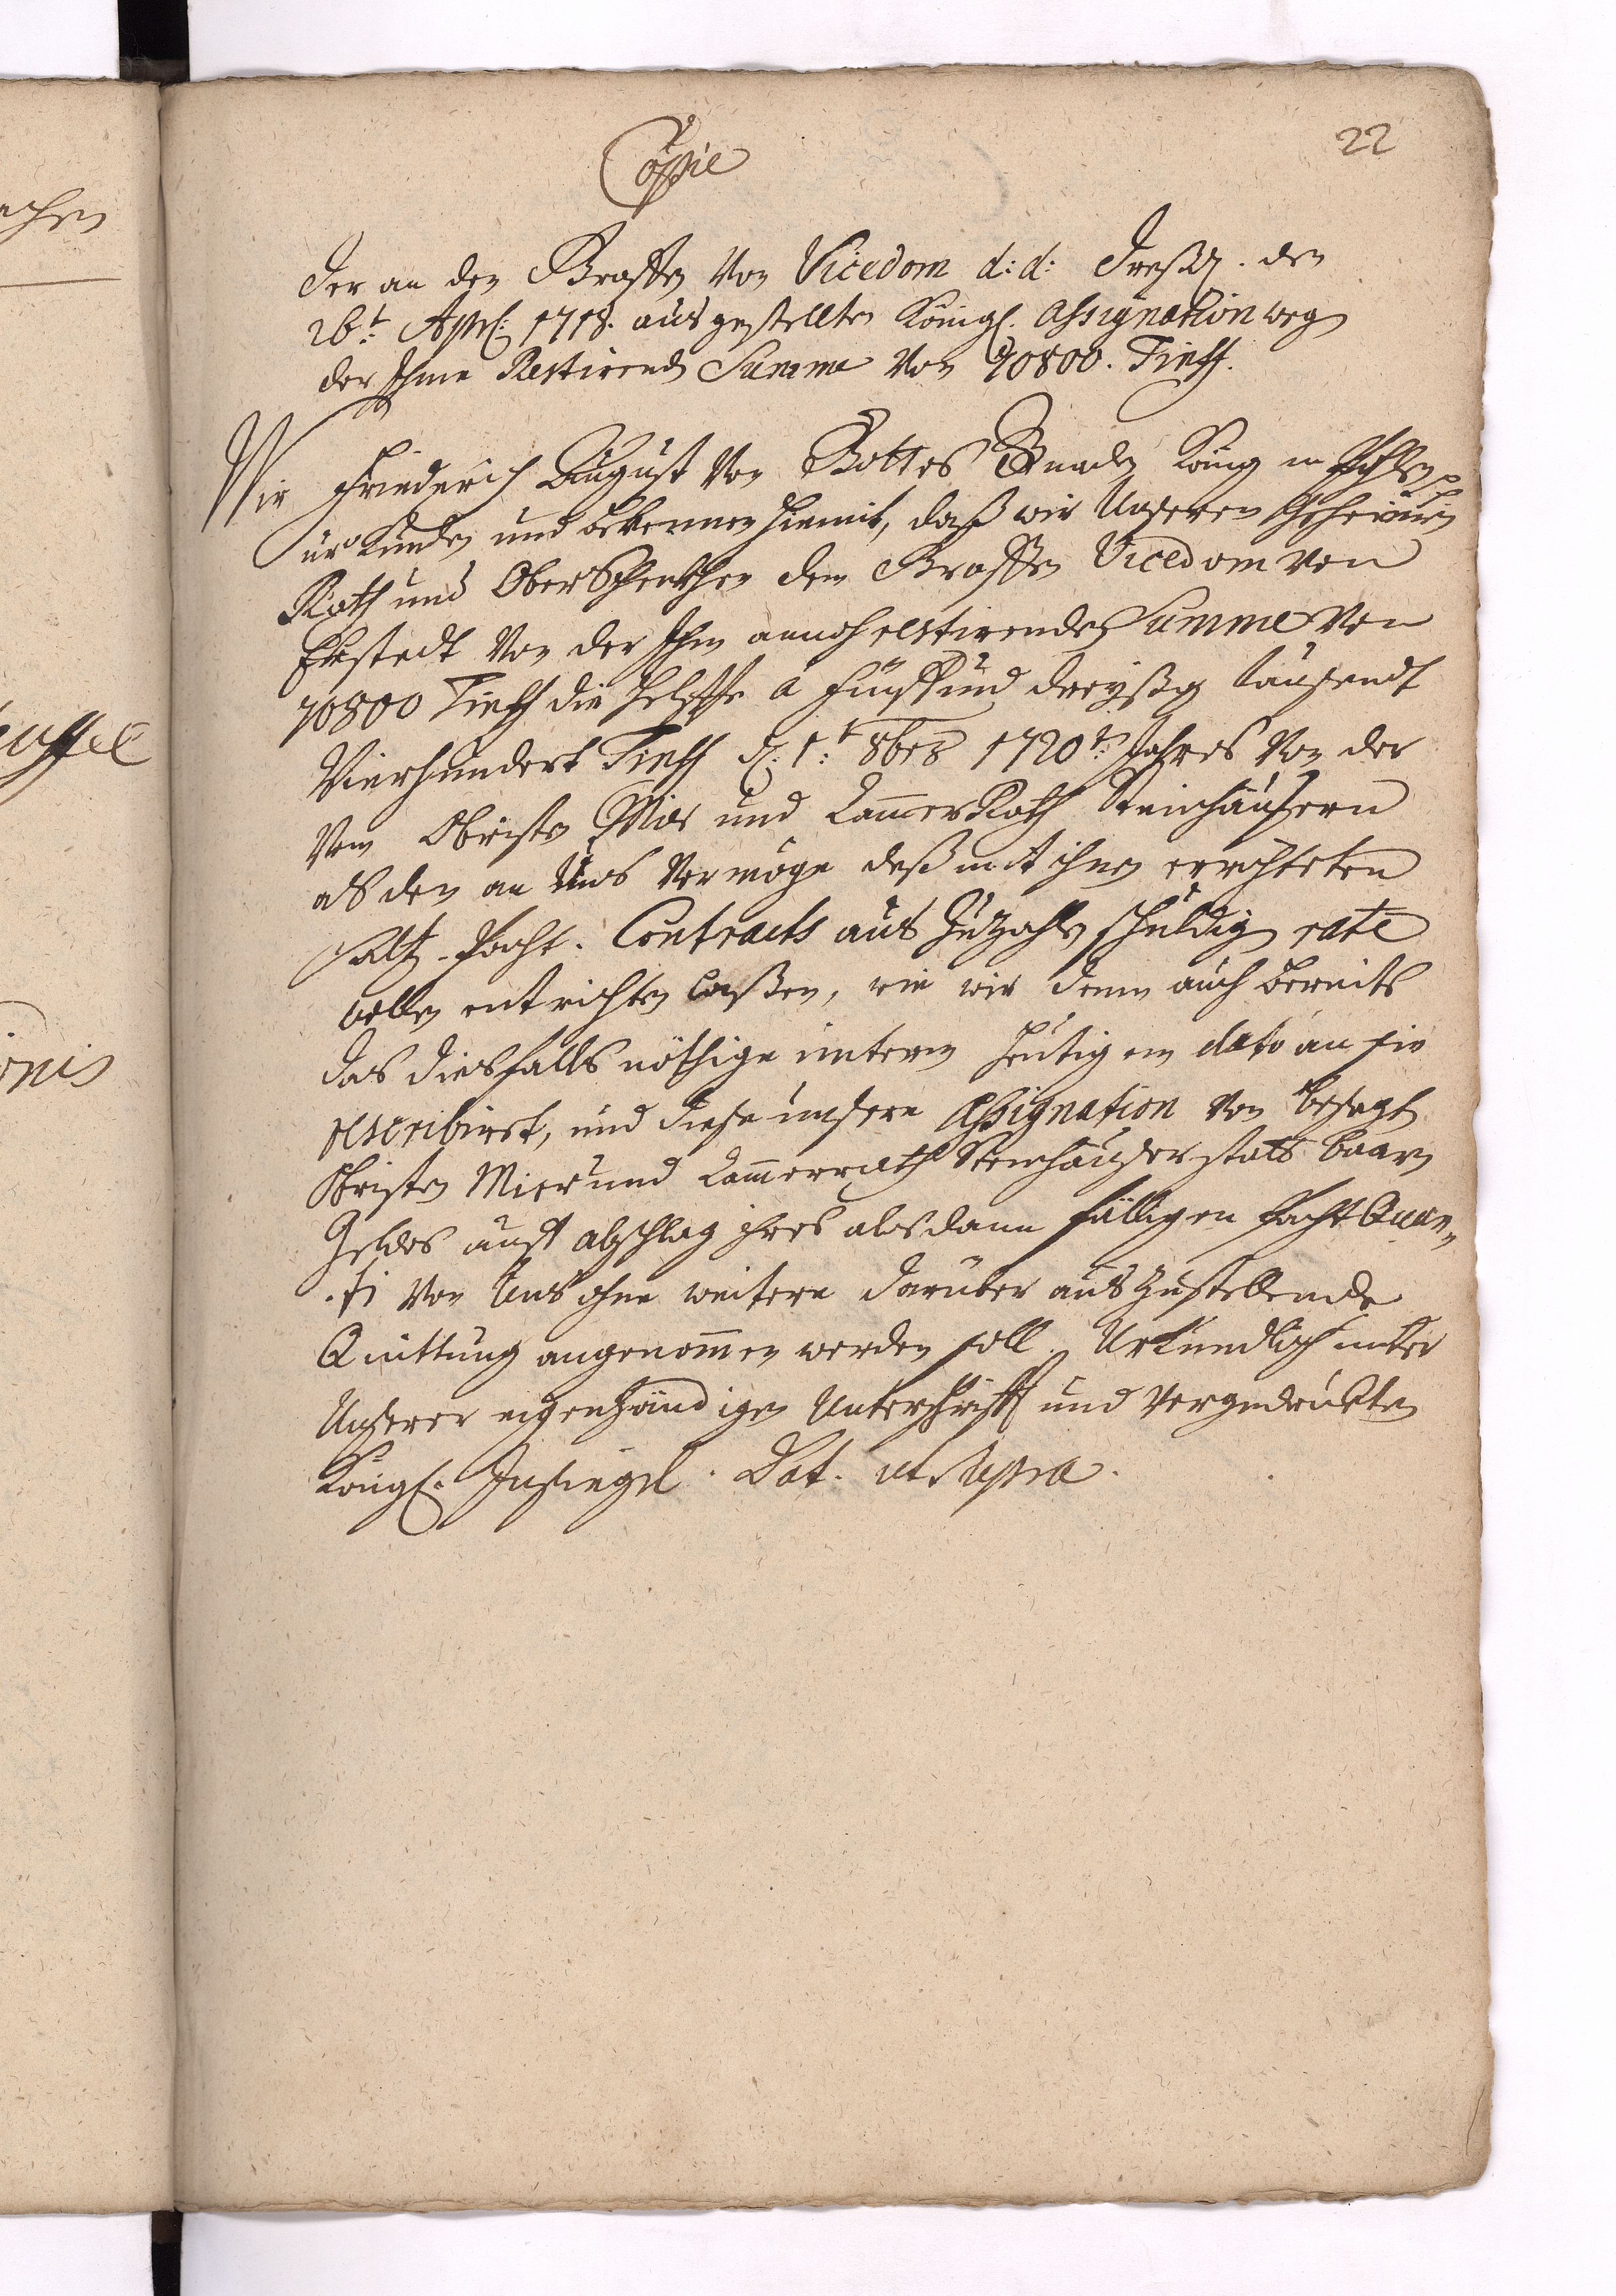 22
Copie
Der an den Graffen Von Vicedom d: d: Dreßd. den
26t. Apr: 1718. ausgestellten Königl. Assignation weg
der Ihme Restirenden Summe Von 70800. Timpf.
Wir Friederich August Von Gottes Gnaden König in Pohlen
uhrkunden und bekennen hiemit, daß wir Unseren Geheimen
Rath und Oberschencken dem Graffen Vicedom von
Ekstedt Von der Ihm annoch restirenden Summe Von
70800 Timpf die Helffte a Fünff und dreyßig tausendt
Vierhundert Timpf d. 1t. 8brs 1720t. Jahres Von der
Vom Obristen Mier und CammerRath Steinhäusern
alsden an Uns Vermöge deß mit ihnen errichteten
Saltz-Pacht-Contracts auszuzahlen schuldigen rate
wollen entrichten laßen, wie wir denn auch bereits
das diesfalls nöthige unterm heutigem dato an sie
rescribirt, und diese unsere Assignation Von besagten
Obristen Mier und Cammerrath Steinhäuser statt baaren
Geldes auff abschlag ihres alsdann fälligen Pacht Quan-
ti Von Uns ohne weitere darüber auszustellende
Quittung angenommen werden soll. Urkundlich unter
Unserer eigenhändigen Unterschrifft und Vorgedruckten
Königl. Insiegel. Dat. ut supra.